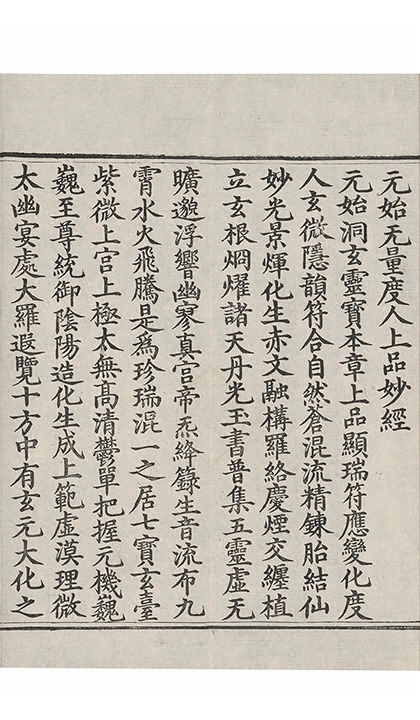 元始无量度人上品妙經
元始洞玄靈寶本章上品顯瑞符應變化度
人玄微隱韻符合自然蒼混流精鍊胎結仙
妙光景煇化生赤文融構羅絡慶煙交纏植
立玄根烱燿諸天丹光玉書普集五靈虛无
曠邈浮響幽寥真宮帝炁絳籙生音流布九
霄水火飛騰是為珍瑞混一之居七寶玄臺
紫微上宮上極太無高清鬱單把握元機巍
巍至尊統御陰陽造化生成上範虛漠理微
太幽宴處大羅遐覽十方中有玄元大化之